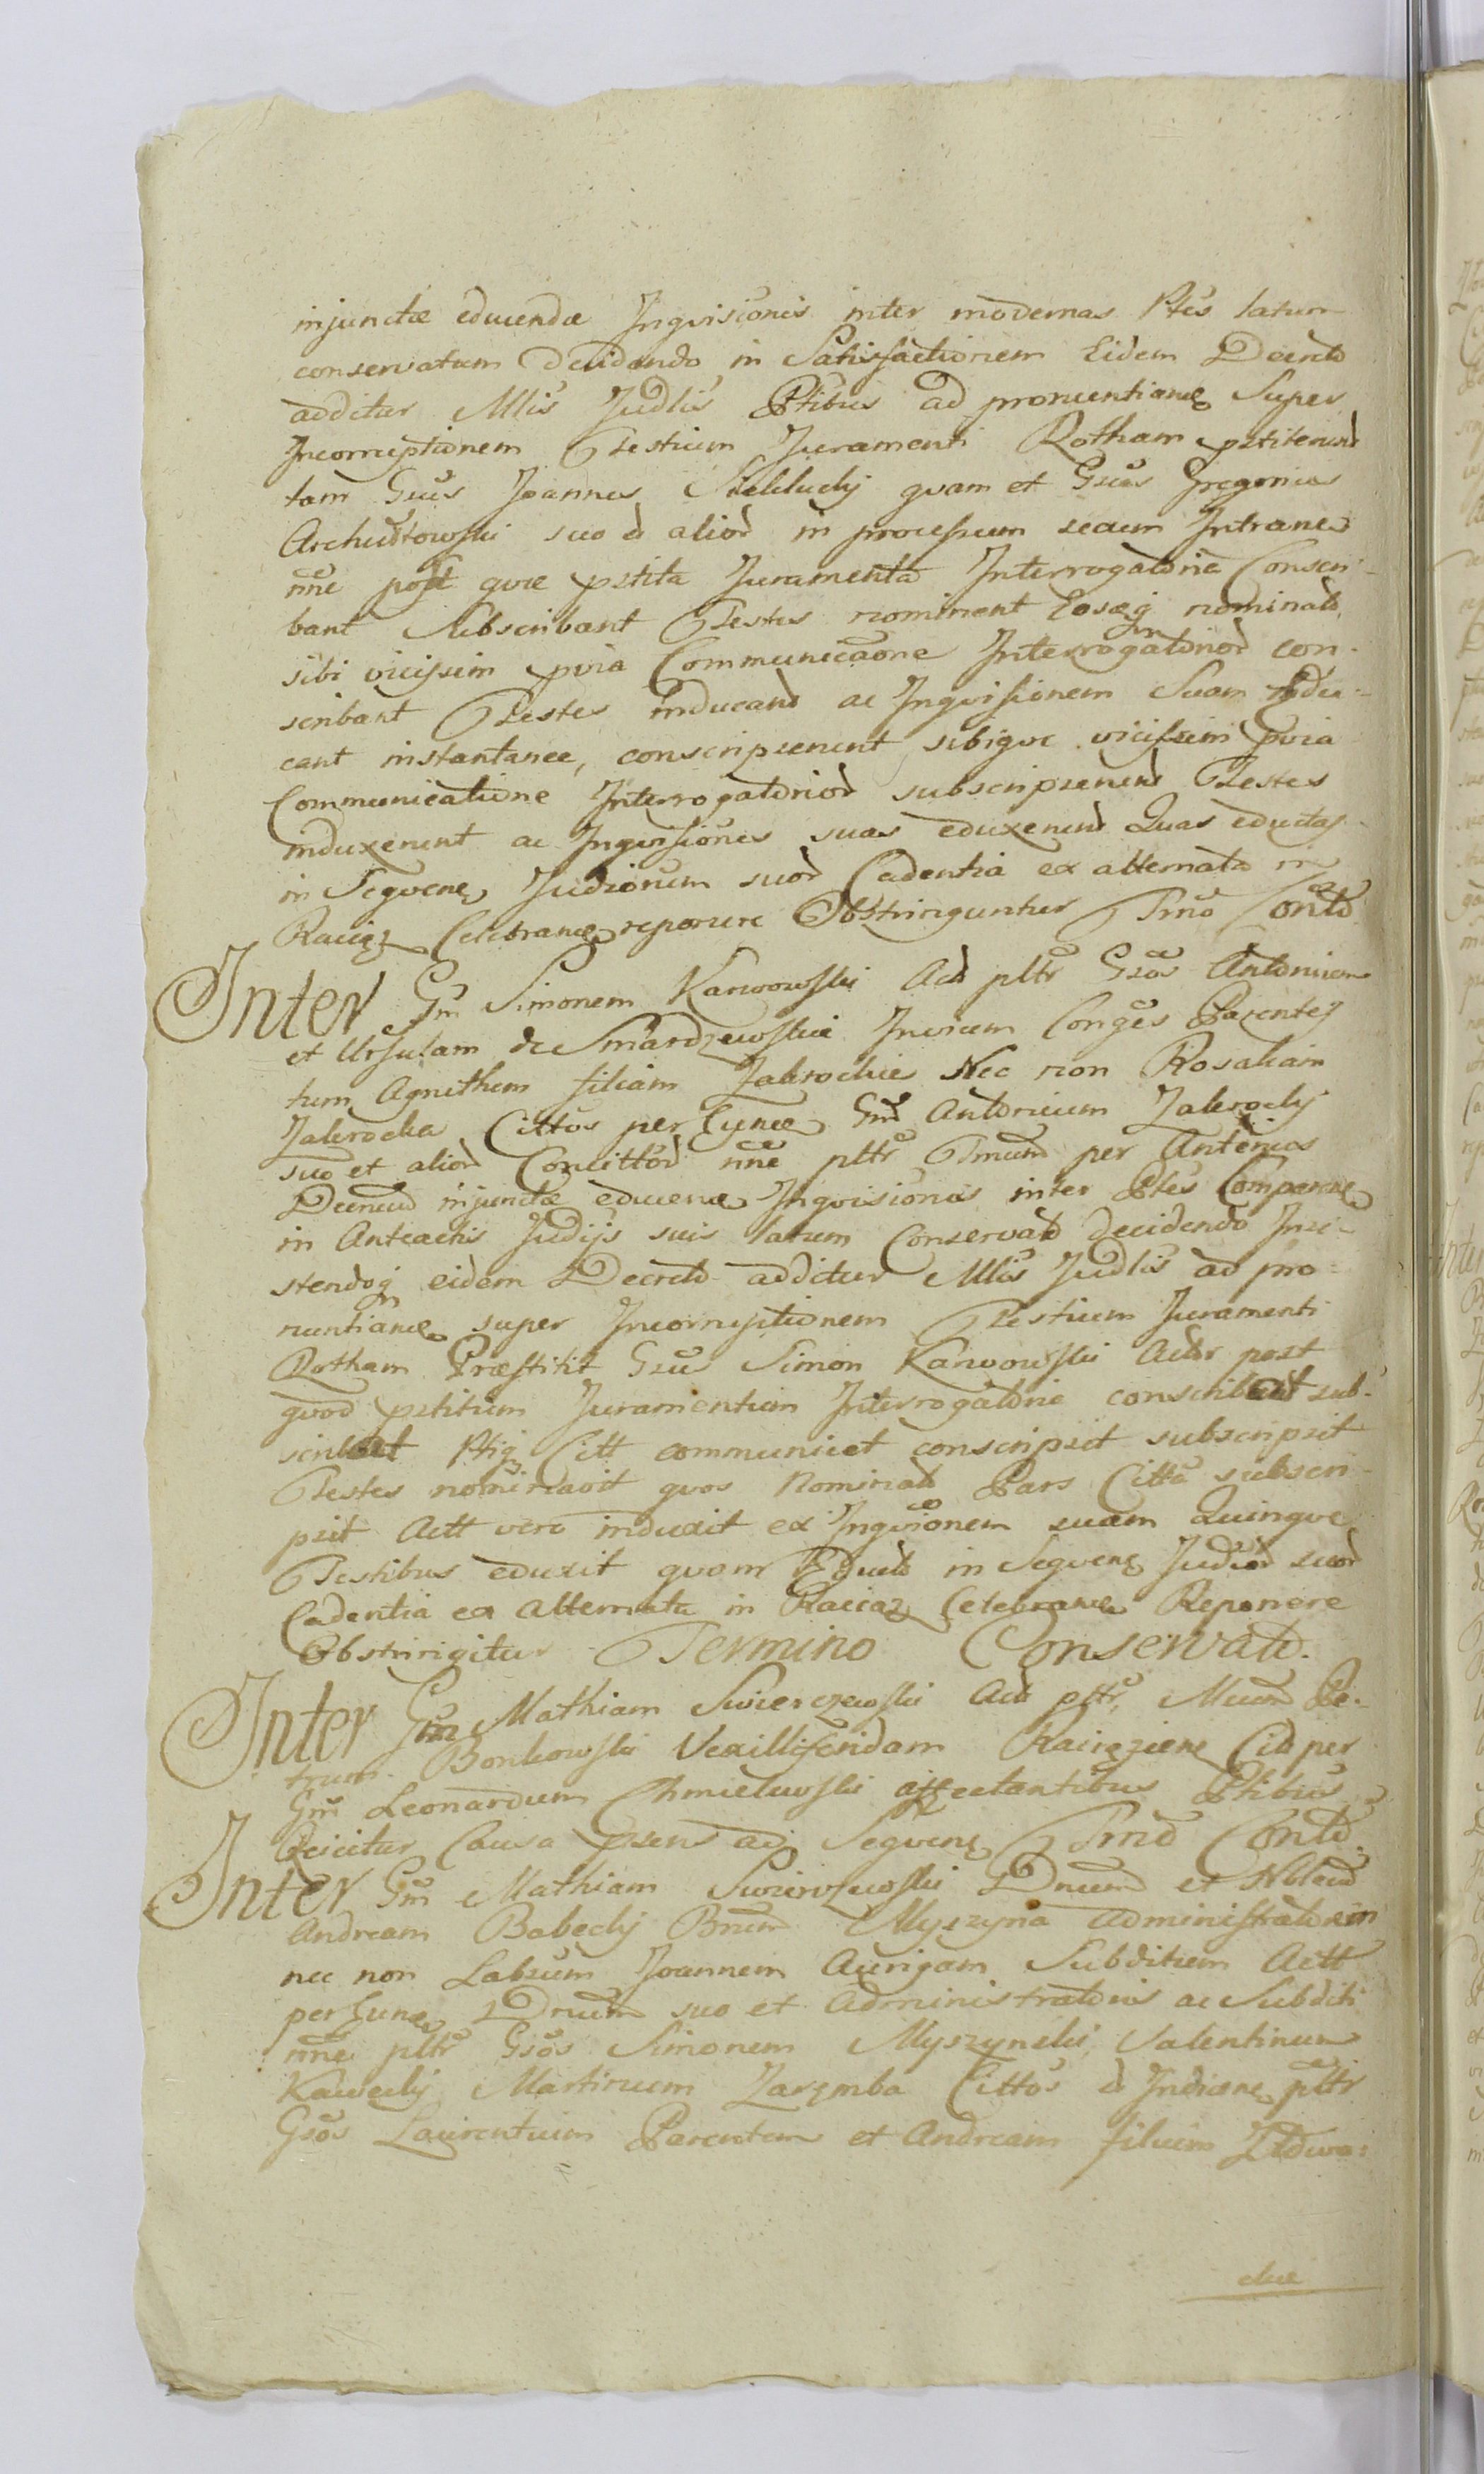 injunctæ educendæ Inqvisiõnis inter modernas Ptes latum
conservatum decidendo in Satisfactionem Eidem Decreto
additur Mlis Judlis Ptibus ad pronuntianc Super
Incorruptionem Testium Juramenti Rotham pstiterunt
tam Gsus Joannes quam et Gsus Gregorius
suo et aliod in processum secum Intrane
nne post qvæ pstita Juramenta Interrogatoria Conscri-
bant Subscribant Testes nominent Eosqz nominato
sibi vicissim pvia Communicaone Interrogatoriod con-
scribant Testes inducant ac Inqvisionem Suam edu-
cant instantanee, conscripserunt sibiqve vicissim pvia
Communicatione Interrogatoriod subscripserunt Testes
induxerunt ac Inqvisiones suas eduxerunt Quas eductas
in Seqvene Judiciorum suod Cadentia ex alternata in
Raciąz Celebrance reponere Obstringuntur Trno Conto
Inter Gm Simonem Karwowski Act pltr Gsos Antonium
et Ursulam de Smardzewskie Invicem Conges Parentes
tum Agnethem filiam Zakrockie Nec non Rosaliam
Zakrocka Cittos per Gm Antonium Zakrocky
suo et aliod Concittod nne pltr Tmum per Anterius
Decretum injunctæ educenæ Inqvisionis inter Ptes Comparene
in Anteactis Judijs suis latum Conservato decidendo Insi-
stendoqz eidem Decreto additur Mlis Judlis ad pro-
nuntiance super Incorruptionem Testium Juramenti
Rotham Præstitit Gsus Simon Karwowski Actor post
qvod pstitum Juramentum Interrogatoria conscribat sub-
scribat Ptiqz Citt communicet conscripsit subscripsit
Testes nominavit qvos Nominato Pars Citta subscri-
psit Actt vero induxit et Inqvionem suam Quinqve
Testibus eduxit qvam Educto in Seqvene Judiod suod
Cadentia ex Alternata in Raciąz Celebrance Reponere
Obstringitur Termino Conservato.
Inter Gm Mathiam Swierczewski Act pltr, Mum Pe-
trum Bonkowski Vexilliferidam Raciąziene Cit per
Gm Leonardum Chmielewski affectantibus Ptibus
Reicitur Causa psens ad Seqvene Trno Conto
Inter Gm Mathiam Swierczewski Dnum et Nblem
Andream Babecky Bnrum Myszyna Administratorem
nec non Labsum Joannem Aurigam Subditum Actt
Dnum suo et Administratoris ac Subditi
nne pltr Gsos Simonem Myszynski, Valentinum
Kawecky Martinum Zaremba Cittos et Indiane pltr
Gsos Laurentium Parentem et Andream filium